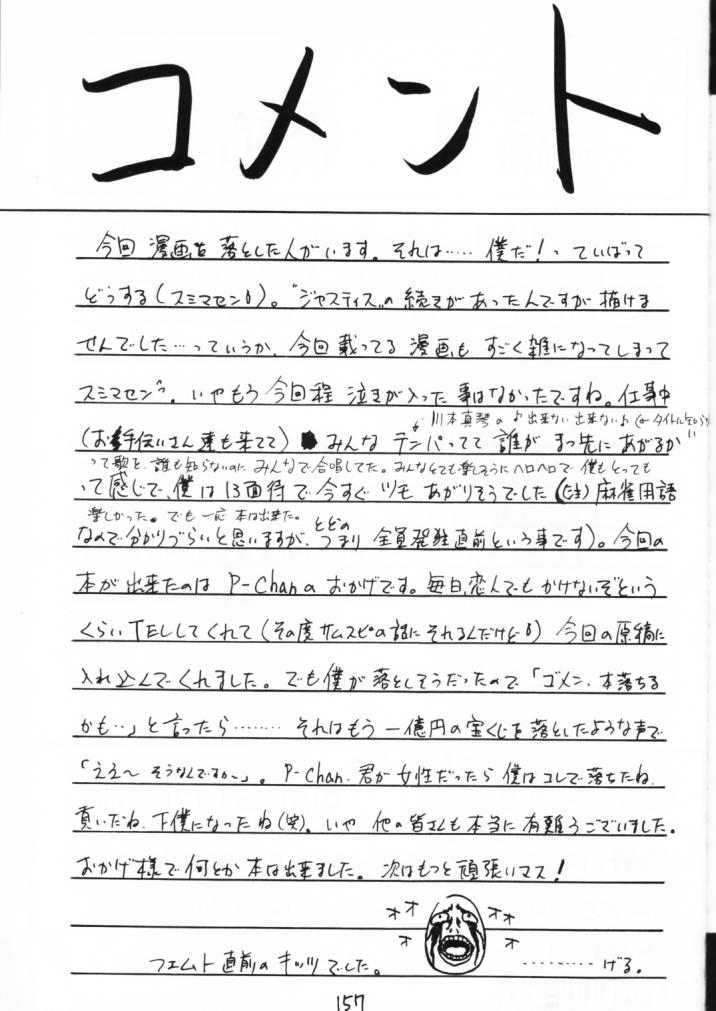 コメント
今回 漫画を 落とした人がいます。それは…… 僕だ!っていばって
どうする(スミマセン)。"ジャスティス"の続きがあったんですが描けま
せんでした…っていうか、今回載ってる漫画も すごく雑になってしまって
スミマセン。いやもう今回程 泣きが入った事はなかったですね。仕事中
川本真琴の♪出来ない出来ない♪(←タイトル知らず)
(お手伝いさん達も来てて) みんな テンパってて 誰が まっ先にあがるかい
って歌を、誰も知らないのに みんなで合唱してた。みんなとても楽しそうにヘロヘロで 僕もとっても
って感じで、僕は13面待で今すぐ ツモ あがりそうでした(注)麻雀用語
楽しかった。でも一応 本は出来た。
なので分かりづらいと思いますが、とどのつまり 全員発狂直前という事です)。今回の
本が出来たのは P-Chanの おかげです。毎日、恋人でも かけないぞという
くらいTELしてくれて(その度サムスピの話にそれるんだけど) 今回の原稿に
入れ込んでくれました。でも僕が落としそうだったので「ゴメン、本落ちる
かも‥」と言ったら……… それはもう 一億円の宝くじを落としたような声で
「ええ〜 そうなんですか〜」。P-Chan、君が女性だったら僕はコレで落ちたね、
貢いだね、下僕になったね(笑)。いや 他の皆さんも本当に有難うございました。
おかげ様で何とか本は出来ました。次はもっと頑張いマス!
オオ オオ
オ オ
フェムト直前のキッツでした。 ………… げる。
157